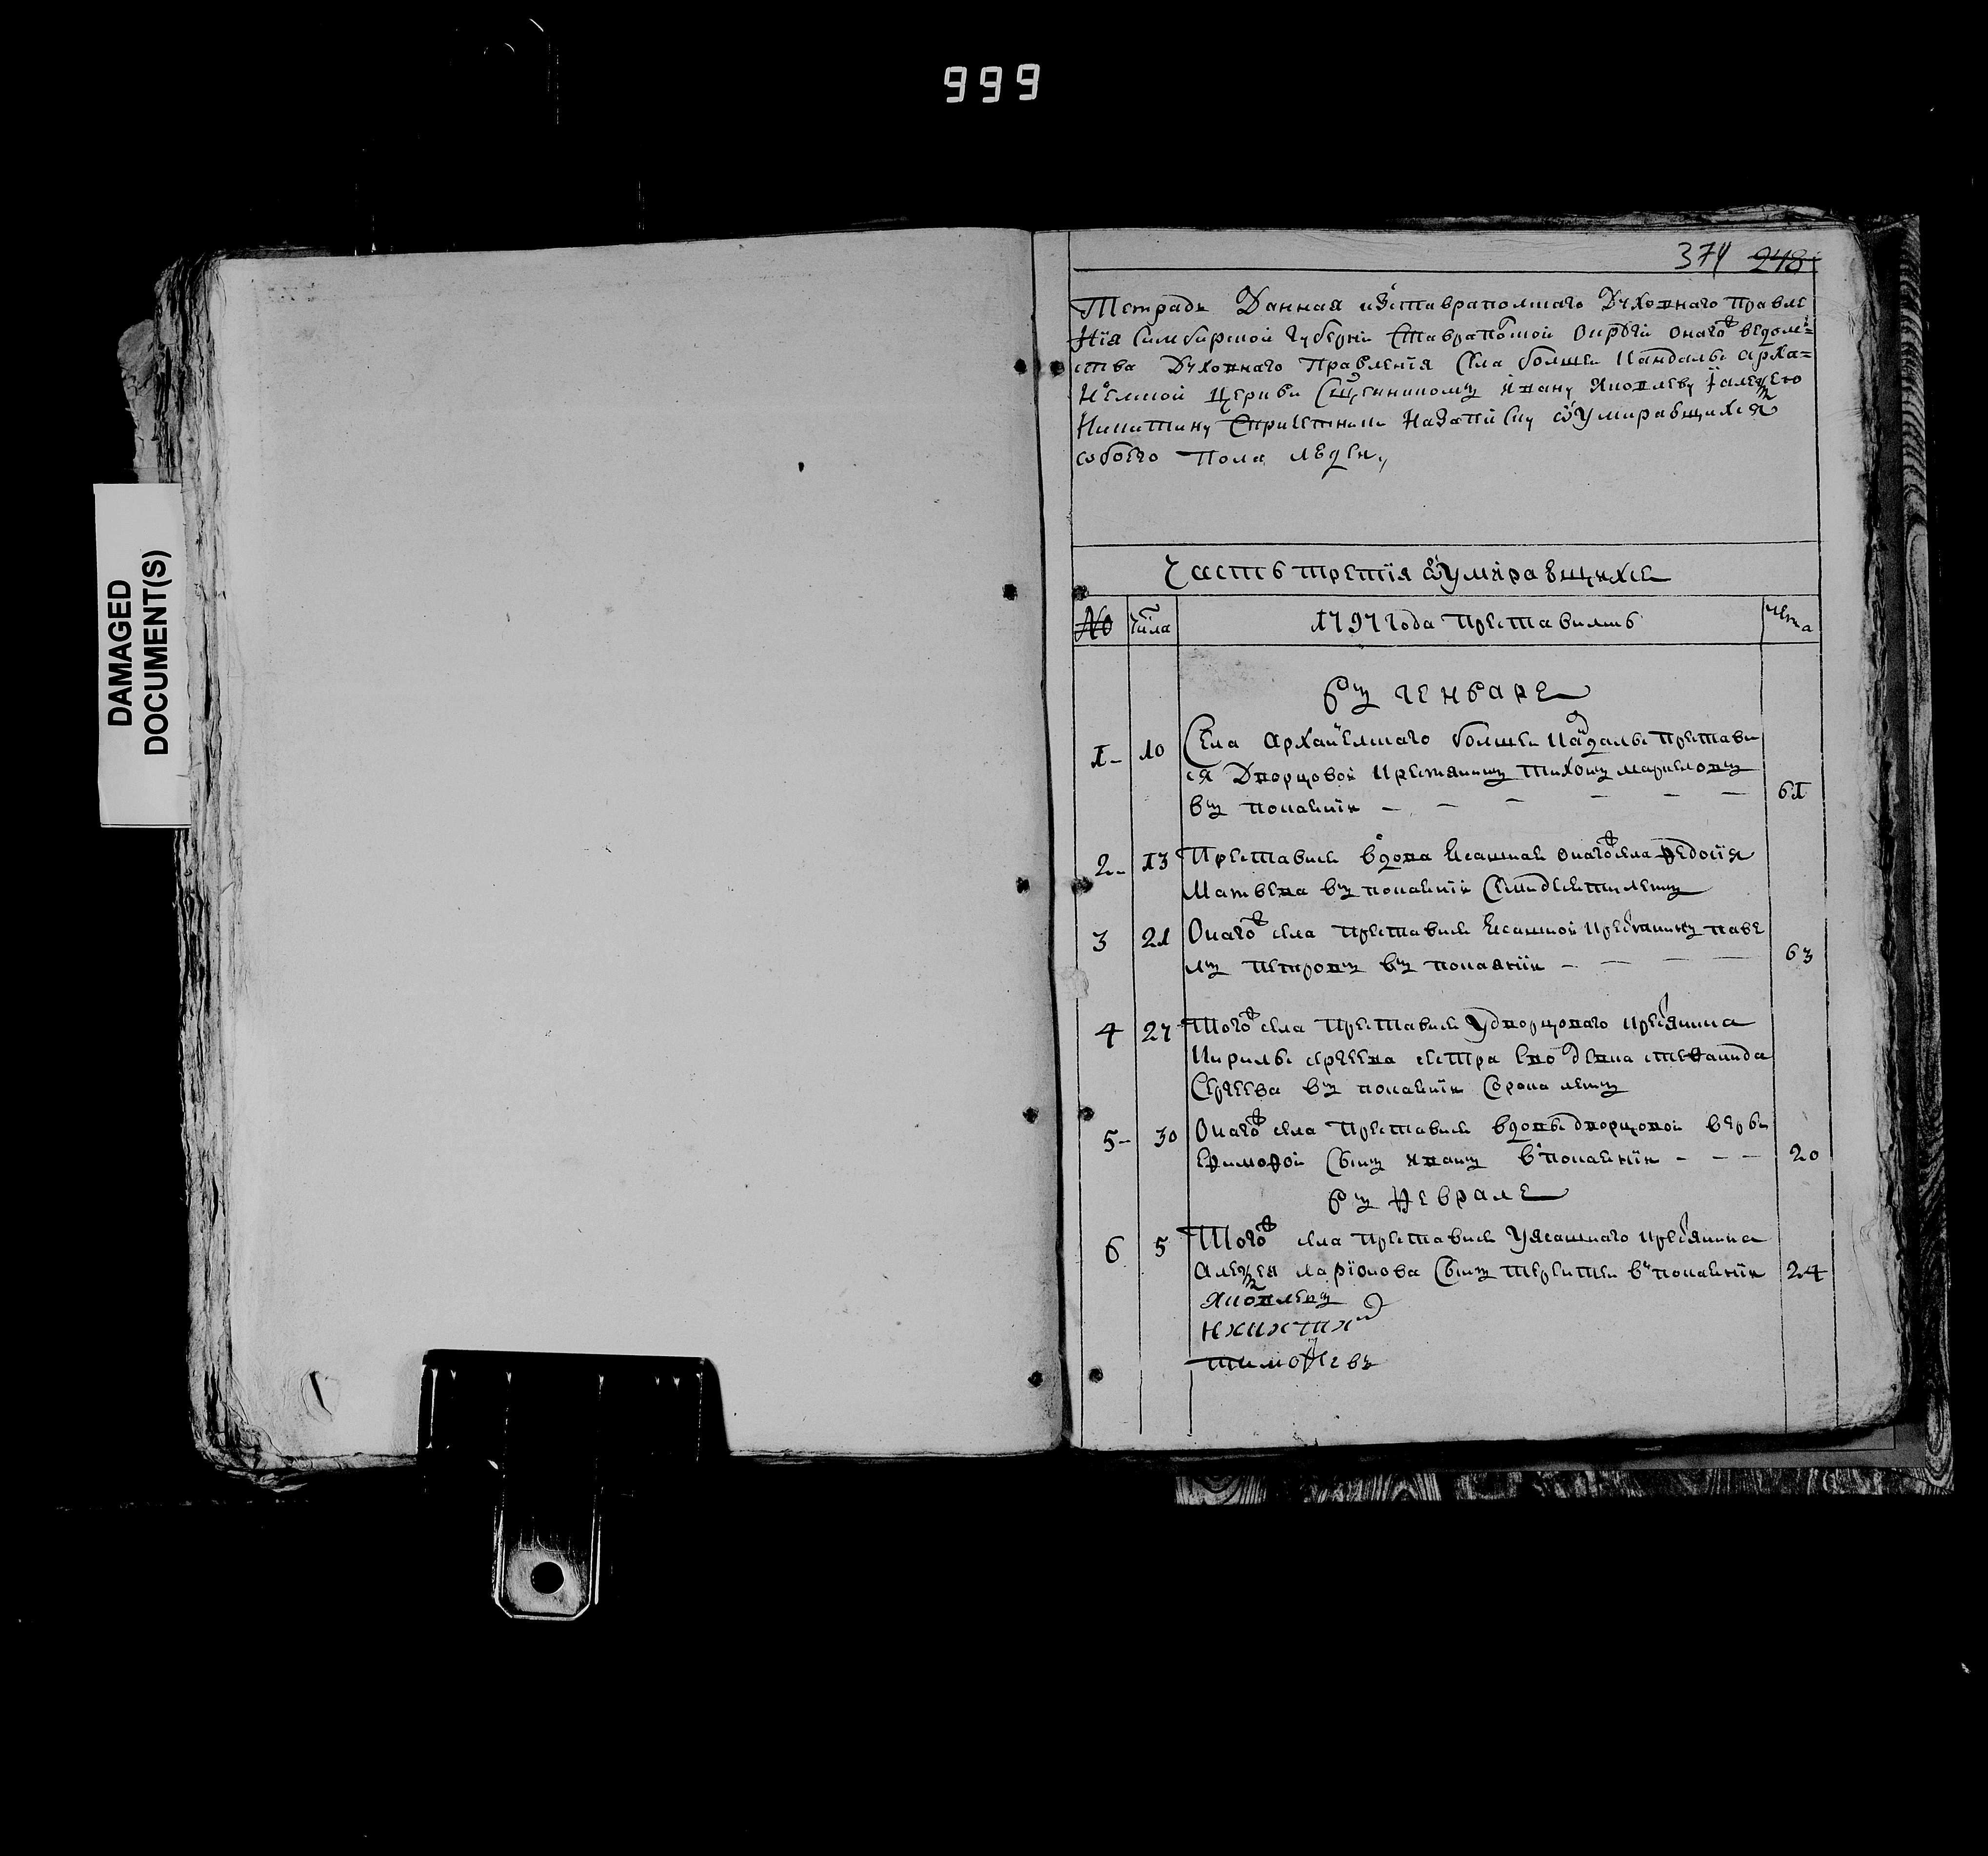 999
374 248
DAMAGED
DOCUMENT(S)
Тетрадь Данная изставрапольскаго Духовнаго правле
нїя Симбирской губерни Ставрапольской округи онагож ведомъ=
ства Духовнаго Правленїя Села болшеи кандалы арха=
нгелской церкви Священникомъ ивану яковлеву алеѯею
Никитину Спричтники Назаписку ѿумирающихся
собоего пола людеи,
Часть третїя ѿумирающихся
№ Числа 1797 года преставились лета
Въ генваре
1- 10 Села архангелскаго болшеи кандалы престави
ся Дворцовой крестянинъ тихонъ маркеловъ
въ покаянїи - - - - - - 61
2- 13 Преставися вдова ясашная онагож села ѳедосїя
Матвева въ покаянїи Семидесяти летъ
3 21 Онагож села преставися ясашной крестянинъ паве
лъ петровъ въ покаянїи - - - - 63
4 27 Тогож села преставися удворцоваго крестянина
Кирилы сергеева сестра ево девка степанида
Сергеева въ покаянїи Сорока летъ
5- 30 Онагож села преставися вдовы дворцовой
Ефимовой Сынъ иванъ в покаянїи - - - 20
Въ Феврале
6 5 Тогож села преставися уясашнаго крестянина
алеѯея ларїонова Сынъ терентеи в покаянїи 24
яковлевъ
никитинъ
тимоѳеевъ